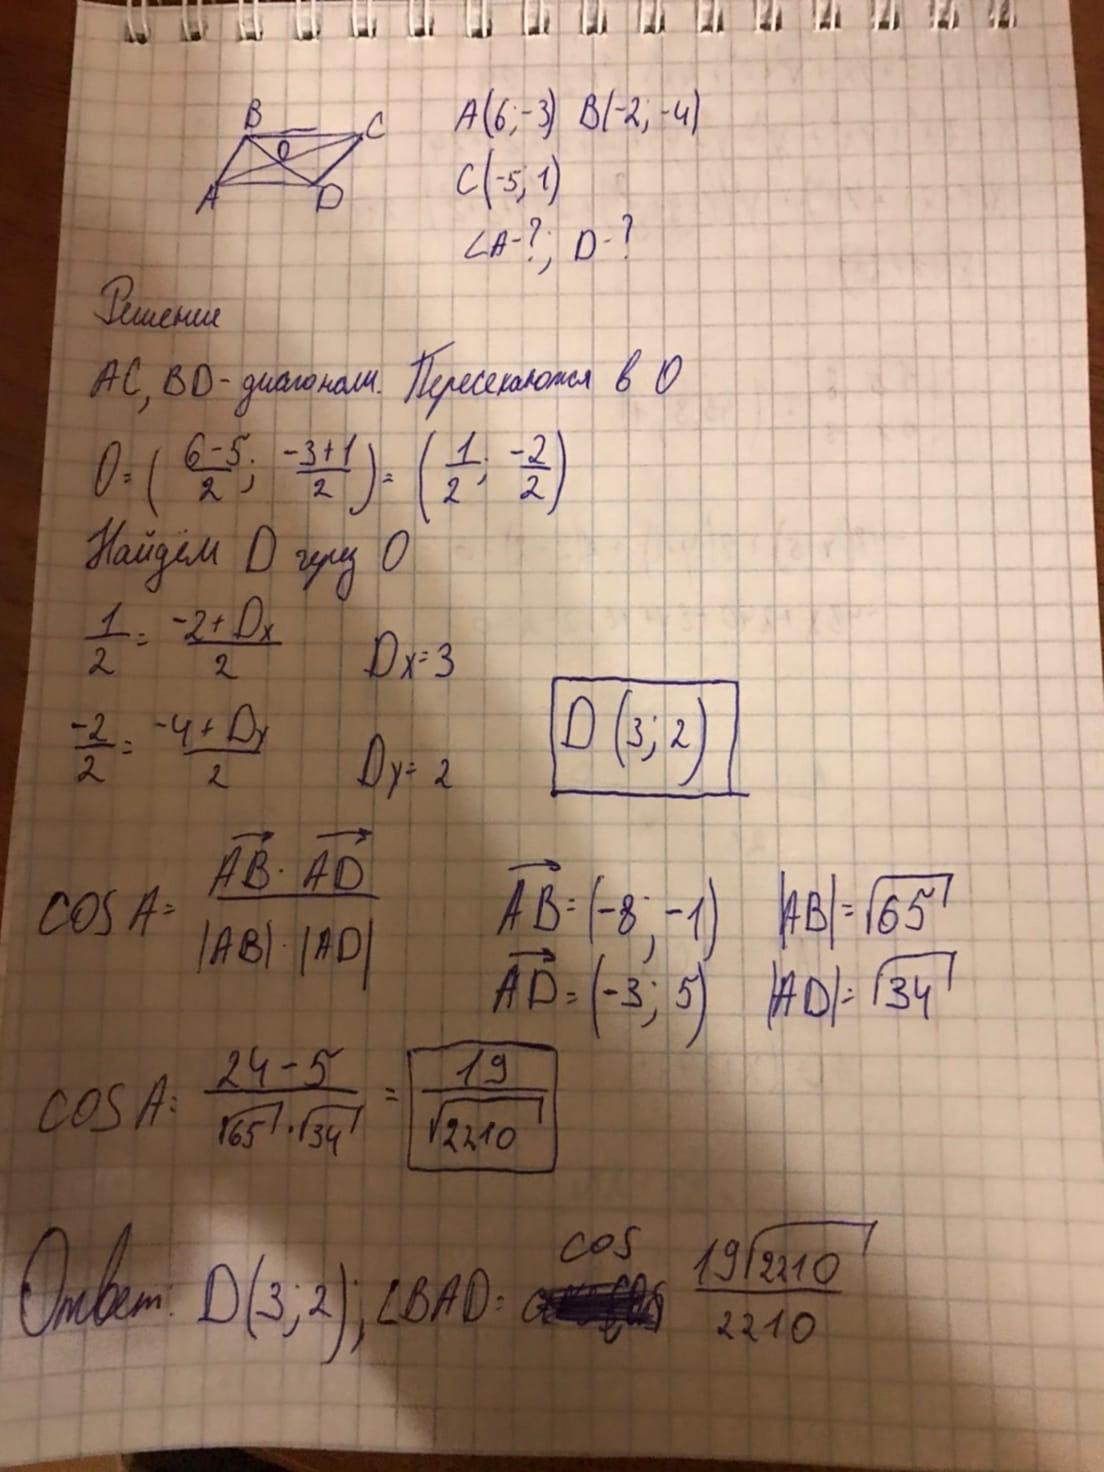 B C
O
A D
A(6;-3) B(-2;-4)
C(-5;1)
∠A-?; D-?
Решение
AC, BD- диагонали. Пересекаются в O
O=(6-5/2; -3+1/2)=(1/2; -2/2)
Найдём D через O
1/2=-2+Dx/2 Dx=3
-2/2=-4+Dy/2 Dy=2
D(3;2)
COS A=AB·AD/|AB|·|AD|
AB=(-8;-1) |AB|=√65
AD=(-3;5) |AD|=√34
COS A=24-5/√65·√34=19/√2210
Ответ: D(3;2); ∠BAD= cos 19√2210/2210